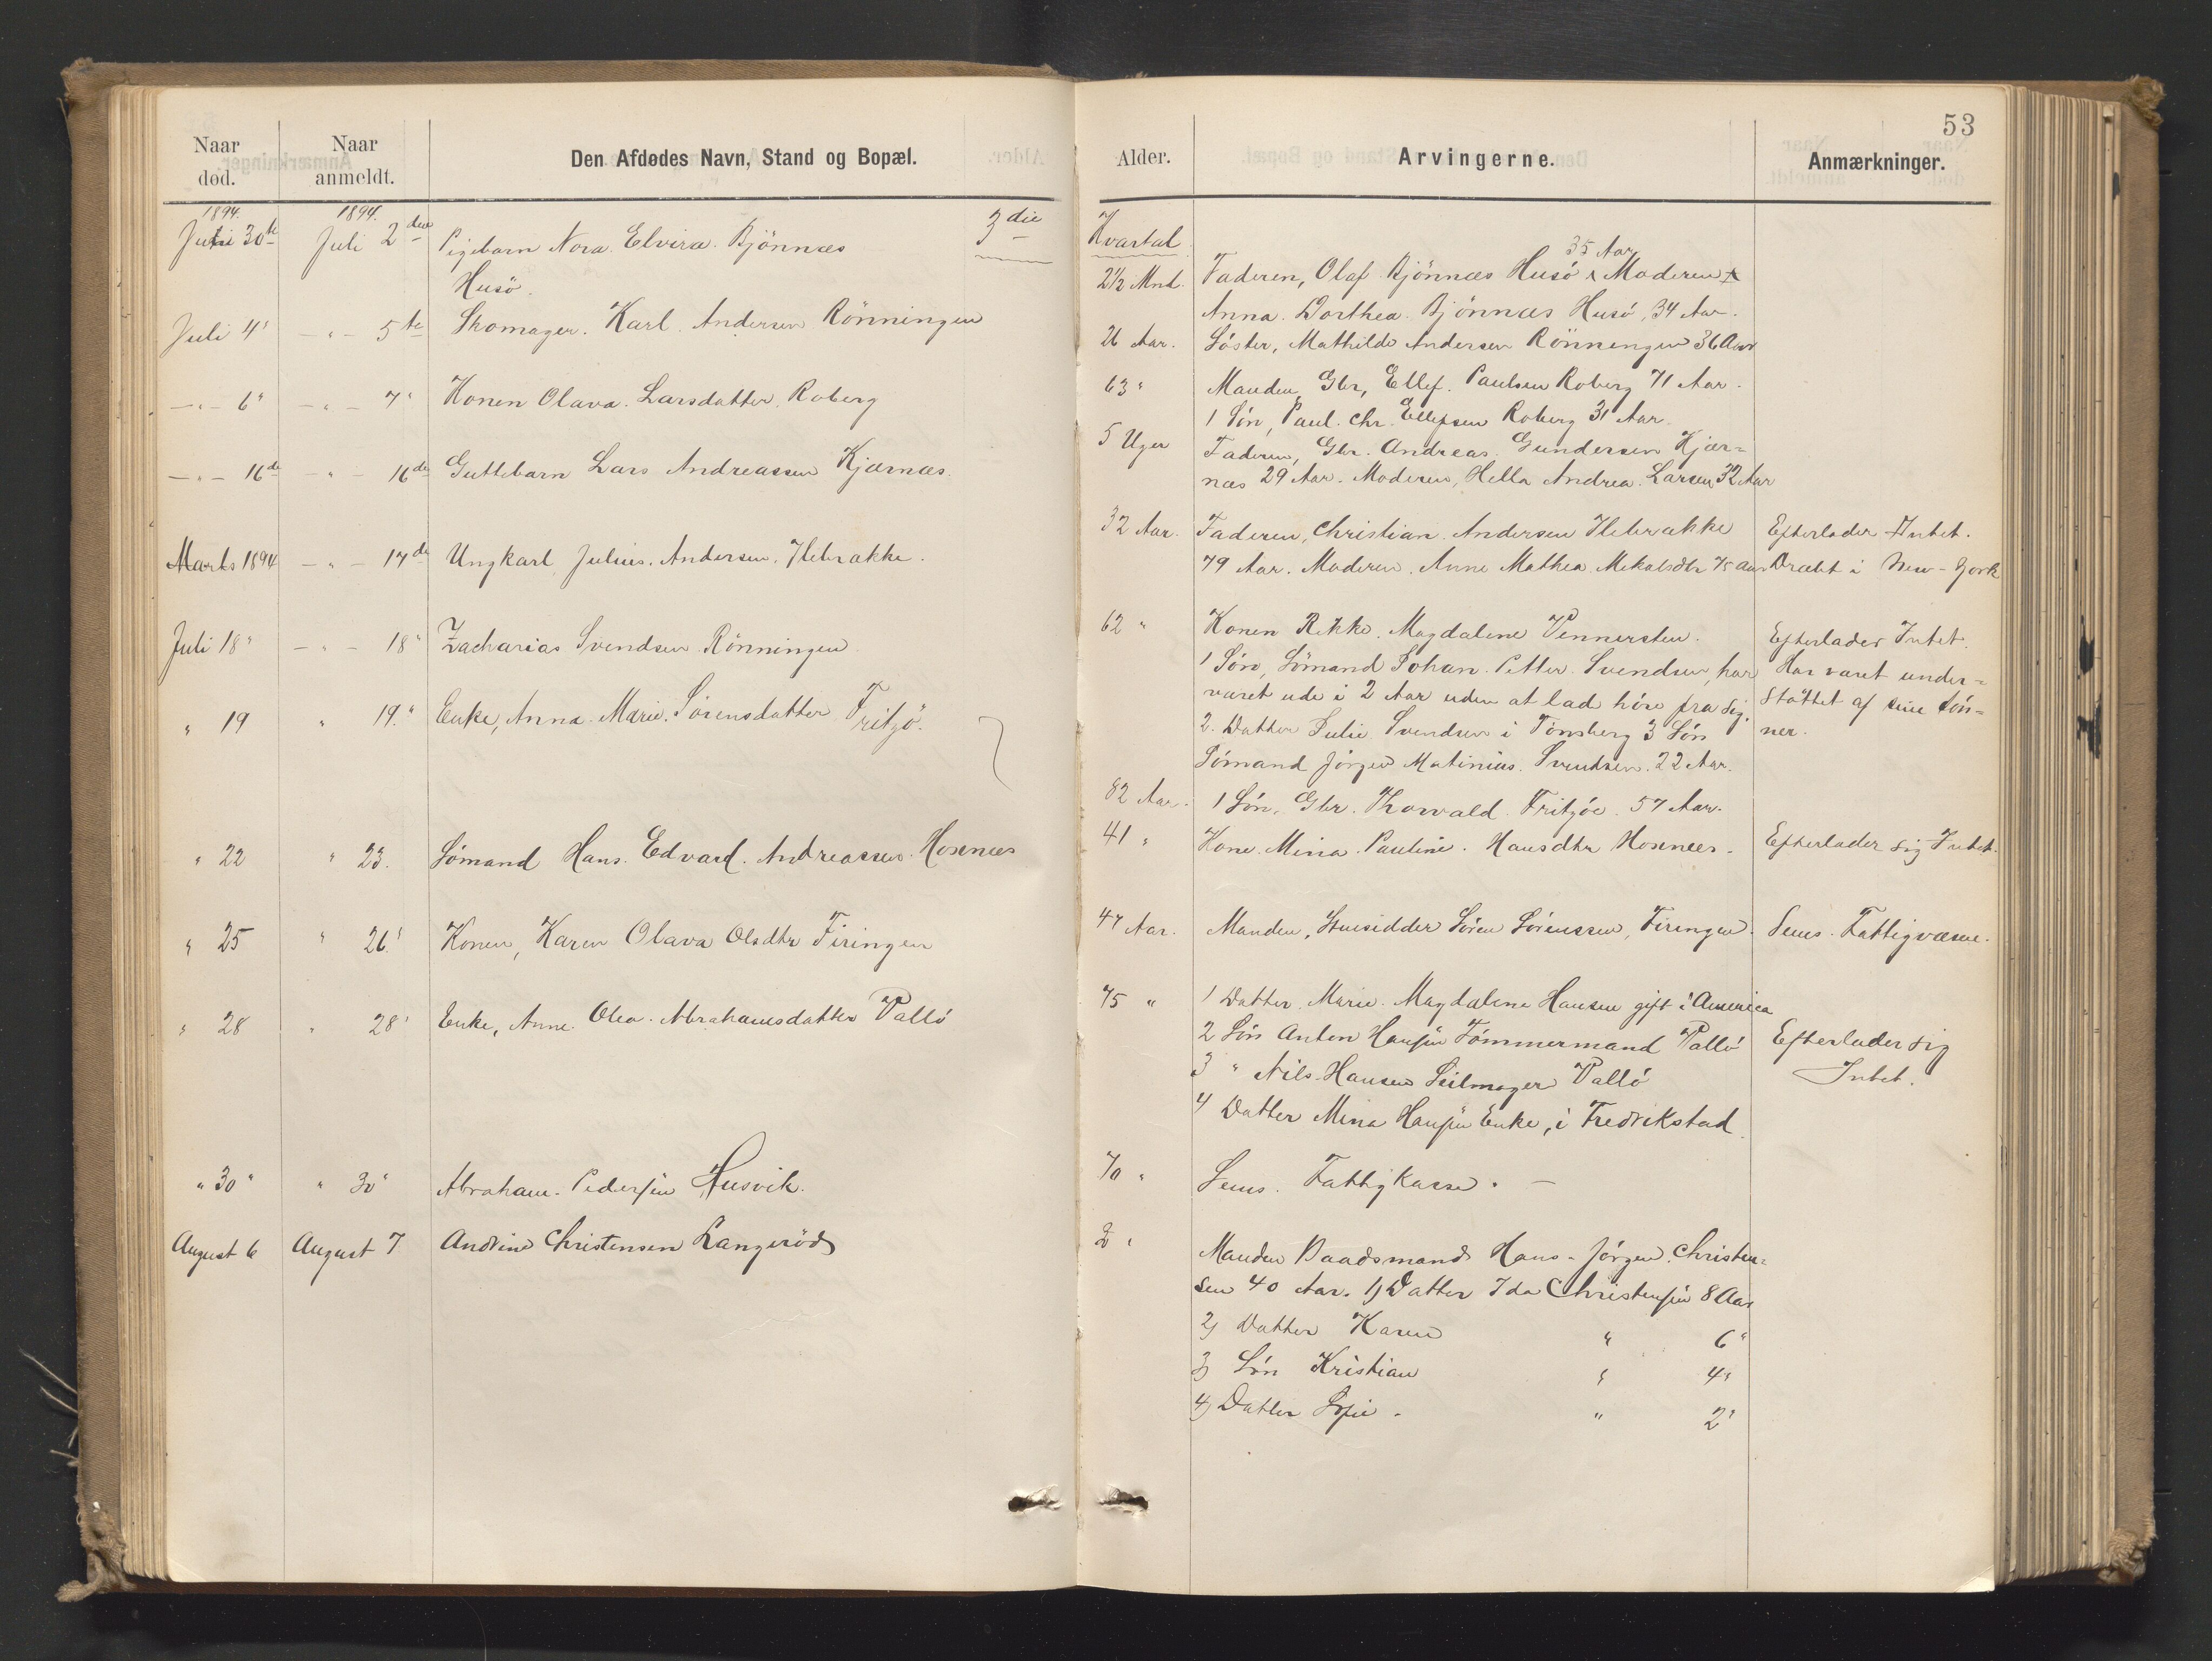 53
Naar død.
Naar anmeldt.
Den Afdødes Navn, Stand og Bopæl.
Alder.
Arvingerne.
Anmærkninger.
3die Kvartal
1894. 1894.
30te Juli 2den Pigebarn Nora Elvira Bjönnæs
Husö.
2½ Mnd. Faderen, Olaf Bjönnæs Husö 35 Aar Moderen
Anna Dorthea Bjönnæs Husö, 34 Aar.
Juli 4' - " - 5te Skomager Karl Andersen Rönningen
26 Aar. Söster, Mathilde Andersen Rönningen 36 Aar
- " - 6" - " - 7" Konen Olava Larsdatter Roberg
63 " Manden, Gbr, Ellef Paulsen Roberg 71 Aar.
1 Sön, Paul Chr. Ellefsen Roberg 31 Aar.
- " - 16de - " - 16de Guttebarn Lars Andreassen Kjærnæs.
5 Uger Faderen, Gbr. Andreas Gundersen Kjær-
næs 29 Aar. Moderen, Hella Andrea Larsen 32 Aar
Marts 1894 - " - 17de Ungkarl Julius Andersen Ilebrække.
32 Aar. Faderen, Christian Andersen Ilebrække
79 Aar. Moderen Anne Mathea Mekalsdtr 75 Aar
Efterlader Intet.
Dræbt i New-York
Juli 18" - " - 18" Zacharias Svendsen Rönningen
62 " Konen Rikke Magdalene Vennersten.
1 Sön, Sömand Johan Petter Svendsen, har
været ude i 2 Aar uden at lad höre fra sig.
2. Datter Julie Svendsen i Tönsberg 3 Sön
Sömand Jörgen Matinius Svendsen 22 Aar.
Efterlader Intet.
Har været under-
stöttet af sine Sön-
ner.
" 19 " 19." Enke, Anna Marie Sörensdatter Fritzö.
82 Aar. 1 Sön, Gbr. Thorvald Fritzöe 57 Aar.
" 22 " 23. Sömand Hans Edvard Andreassen Hosnæs
41 " Kone Mina Pauline Hansdtr Hosnæs.
Efterlader sig Intet.
" 25 " 26' Konen, Karen Olava Olsdtr Firingen
47 Aar. Manden, Huusidder Sören Sörenssen, Firingen.
Sems Fattigvæsne.
" 28 " 28' Enke, Anne Olea Abrahamsdatter Vallö
75 " 1 Datter Marie Magdalene Hansen gift i America
2 Sön Anton Hansen Tömmermand Vallö
3 " Nils Hansen Seilmager Vallö
4 Datter Mina Hansen Enke, i Fredrikstad.
Efterlader sig
Intet.
" 30 " " 30" Abraham Pedersen Husvik.
70 " Sems Fattigkasse.
August 6 August 7 Andrine Christensen Langeröd
Manden Baadsmand Hans Jörgen Christen-
sen 40 Aar. 1) Datter Ida Christensen 8 Aar
2) Datter Karen " 6"
3) Sön Kristian " 4"
4) Datter Sofie " 2"